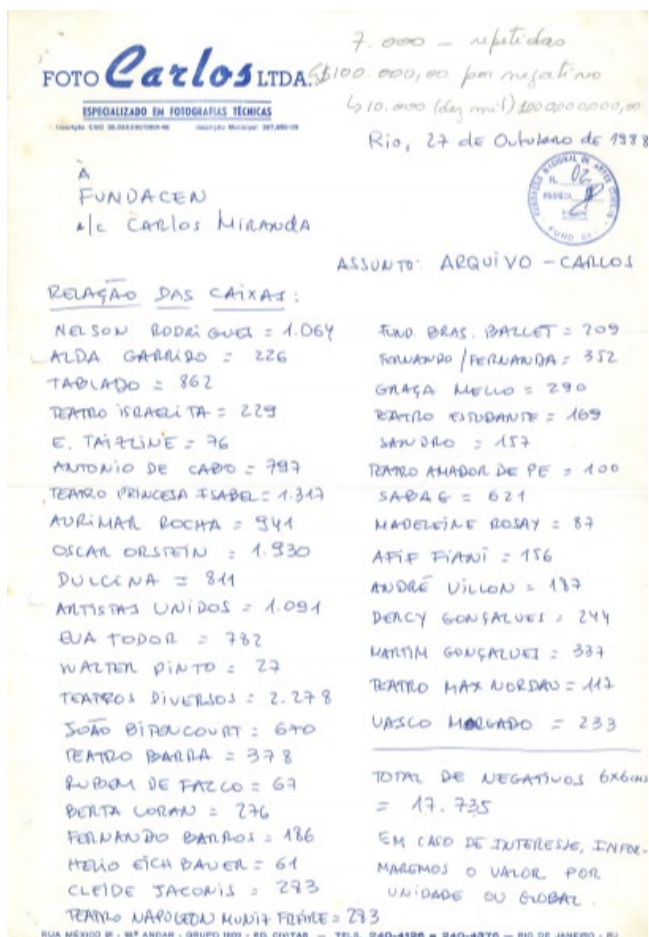 7.000 — repetidas
FOTO Carlos LTDA.
100.000,00 por negativo
ESPECIALIZADO EM FOTOGRAFIAS TÉCNICAS
10.000 (dez mil)
Rio, 27 de Outubro de 1988
À
FUNDACEN
a/c CARLOS MIRANDA
FUNDAÇÃO NACIONAL DE ARTES CÊNICAS
ASSUNTO: ARQUIVO - CARLOS
RELAÇÃO DAS CAIXAS:
NELSON RODRIGUES = 1.064
ALDA GARRIDO = 226
TABLADO = 862
TEATRO ISRAELITA = 229
E. = 76
ANTONIO DE CABO = 797
TEATRO PRINCESA ISABEL = 1.317
AURIMAR ROCHA = 941
OSCAR ORSTEIN = 1.930
DULCINA = 811
ARTISTAS UNIDOS = 1.091
EVA TODOR = 782
WALTER PINTO = 27
TEATROS DIVERSOS = 2.278
JOÃO BITENCOURT = 670
TEATRO BARRA = 378
RUBEM DE FALCO = 67
BERTA LORAN = 276
FERNANDO BARROS = 186
HELIO EICHBAUER = 61
CLEIDE JACONIS = 293
TEATRO NAPOLEON MUNIZ FREIRE = 293
FUND. BRAS. BALLET = 209
FERNANDO/FERNANDA = 352
GRAÇA MELLO = 290
TEATRO ESTUDANTE = 169
SANDRO = 157
TEATRO AMADOR DE PE = 100
SABAG = 621
MADELEINE ROSAY = 87
AFIF FIANI = 156
ANDRÉ VILLON = 187
DERCY GONÇALVES = 244
MARTIM GONÇALVES = 337
TEATRO MAX NORDAU = 117
VASCO MORGADO = 233
TOTAL DE NEGATIVOS 6x6cms
= 17.735
EM CASO DE INTERESSE, INFOR-
MAREMOS O VALOR POR
UNIDADE OU GLOBAL.
RUA MÉXICO - ANDAR - GRUPO - ED. CIVITAS - TELS. 240-4126 - RIO DE JANEIRO - RJ